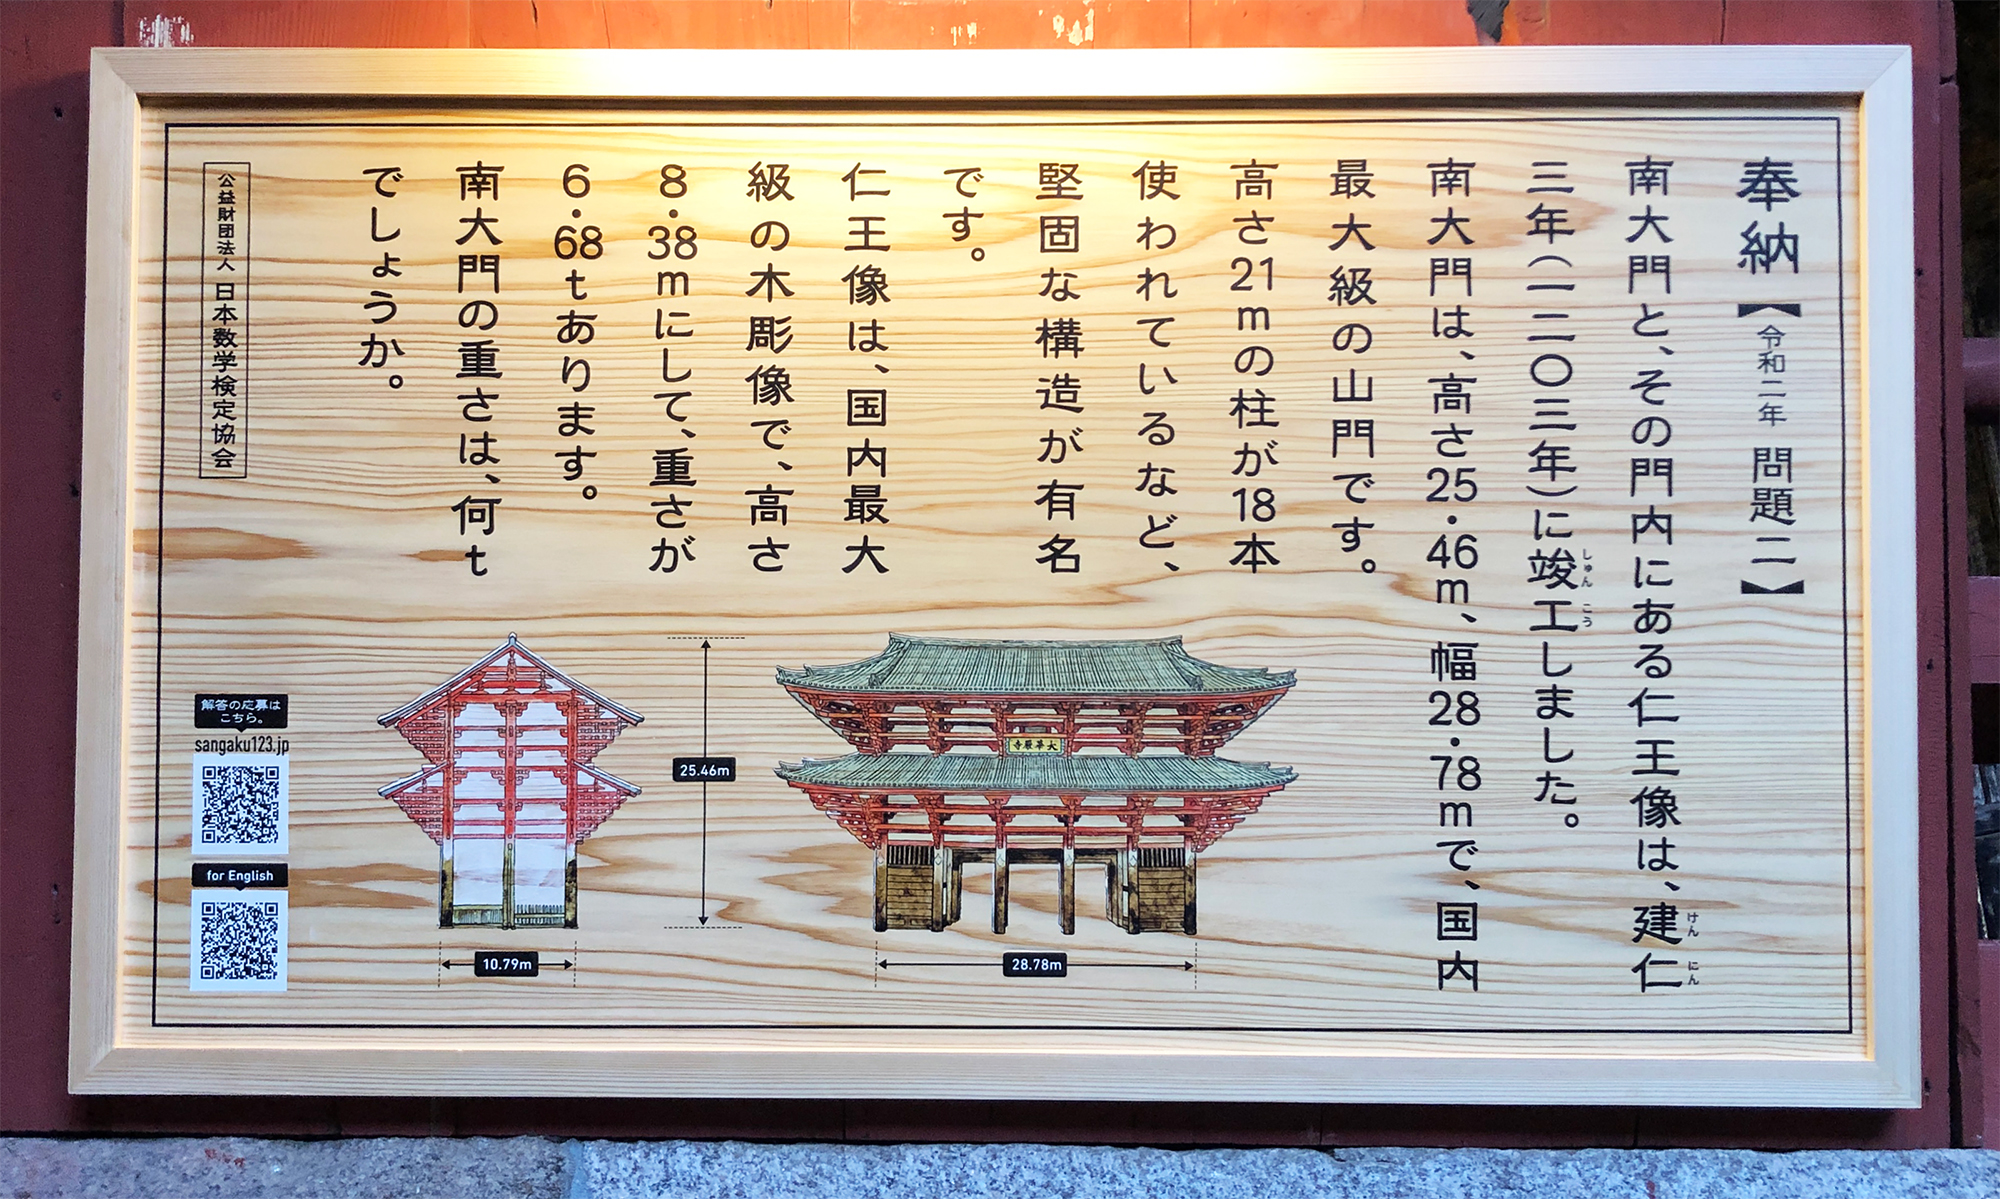 奉納【令和二年 問題二】
南大門と、その門内にある仁王像は、建仁
けんにん
三年(一二〇三年)に竣工しました。
しゅんこう
南大門は、高さ25・46m、幅28・78mで、国内
最大級の山門です。
高さ21mの柱が18本
使われているなど、
堅固な構造が有名
です。
仁王像は、国内最大
級の木彫像で、高さ
8・38mにして、重さが
6・68tあります。
南大門の重さは、何t
でしょうか。
公益財団法人 日本数学検定協会
大華厳寺
25.46m
28.78m
10.79m
解答の応募は
こちら。
sangaku123.jp
for English